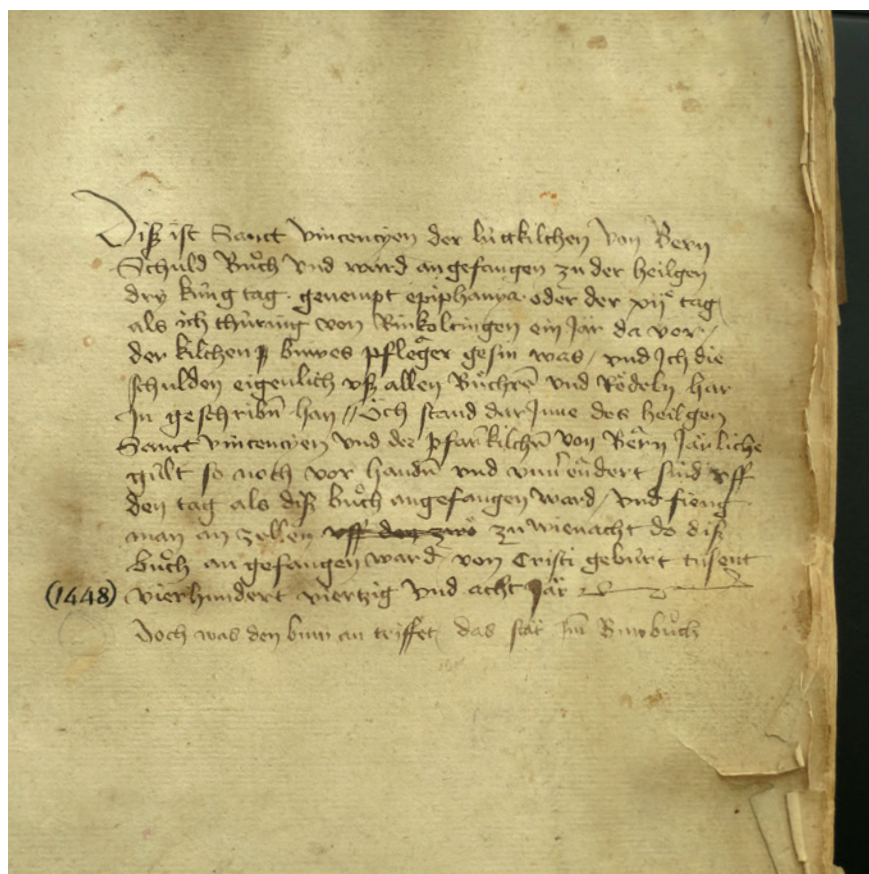 Diß ist Sanct vincencyen der lütkilchen von Bern
Schuld Buͦch vnd ward angefangen zu der heilgen
dry küng tag. genempt epiphanya. oder der xijͤ tag
als ich thüring von Rinkoltingen ein Jar da vor /
der kilchen buwes pfleger gesin was / vnd Ich die
schulden eigenlich vß allen Buͤchren̄ vnd Roͤdeln har
In geschribn̄ han // Och stand dar Inne des heilgen
Sanct vincencyen vnd der pfarkilchn̄ von Bern Jarliche
gült so noch vor handn̄ vnd endert sind vff
den tag als diß buͦch angefangen ward / vnd fieng
man an zellen vff den zwo zu wienacht do diß
buͦch angefangen ward von Cristi gebürt tusent
(1448) vierhundert viertzig vnd acht Jar
Doch was den buw an triffet / das stat Im Buwbuͦch